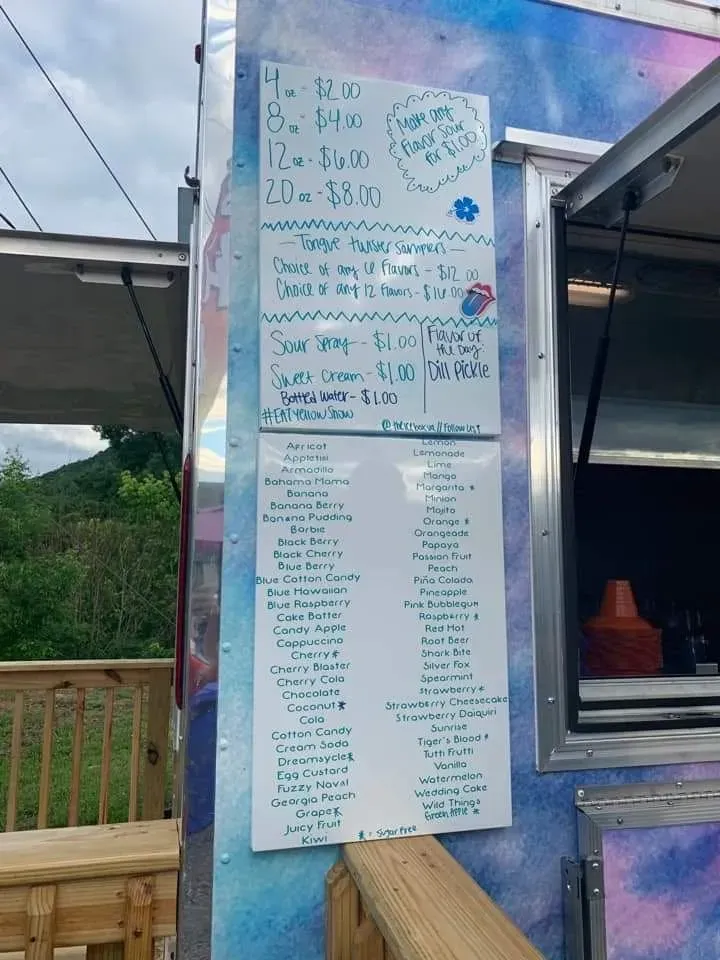 4 oz - $2.00
8 oz - $4.00
12 oz - $6.00
20 oz - $8.00
Make any
Flavor Sour
for $1.00
- Tongue twister samplers -
Choice of any 6 Flavors - $12.00
Choice of any 12 Flavors - $16.00
Sour Spray - $1.00
Sweet Cream - $1.00
Bottled Water - $1.00
#EATYellowSnow
Flavor of
the Day:
Dill Pickle
@theiceboxva // Follow us!
Apricot
Appletini
Armadillo
Bahama Mama
Banana
Banana Berry
Banana Pudding
Barbie
Black Berry
Black Cherry
Blue Berry
Blue Cotton Candy
Blue Hawaiian
Blue Raspberry
Cake Batter
Candy Apple
Cappuccino
Cherry*
Cherry Blaster
Cherry Cola
Chocolate
Coconut*
Cola
Cotton Candy
Cream Soda
Dreamsycle*
Egg Custard
Fuzzy Naval
Georgia Peach
Grape*
Juicy Fruit
Kiwi
Lemon
Lemonade
Lime
Mango
Margarita *
Minion
Mojito
Orange *
Orangeade
Papaya
Passion Fruit
Peach
Piña Colada
Pineapple
Pink Bubblegum
Raspberry *
Red Hot
Root Beer
Shark Bite
Silver Fox
Spearmint
Strawberry*
Strawberry Cheesecake
Strawberry Daiquiri
Sunrise
Tiger's Blood *
Tutti Frutti
Vanilla
Watermelon
Wedding Cake
Wild Things
Green Apple *
* = Sugar Free